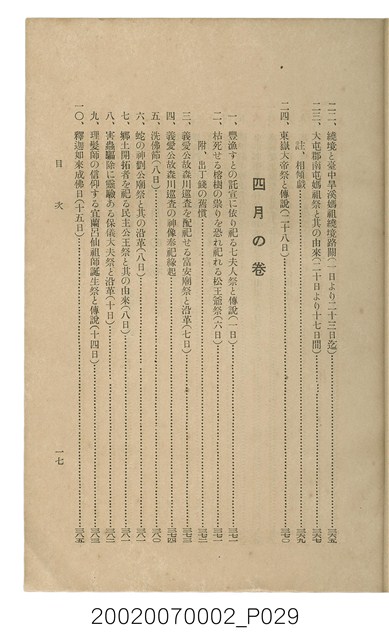 二二、繞境と臺中旱溪媽祖繞境路關(一日より二十三日迄)…三六五
二三、大屯郡南屯媽祖祭と其の由來(二十日より十七日間)…三六七
註、相傾戯…三六九
二四、東嶽大帝祭と傳說(二十八日)…三七〇
四月の卷
一、豐漁すとの託宣に依り祀る七夫人祭と傳說(一日)…三七一
二、枯死せる榕樹の祟りを恐れ祀れる松王爺祭(六日)…三七一
附、出丁錢の舊慣…三七二
三、義愛公故森川巡査を配祀せる富安廟祭と沿革(七日)…三七三
四、義愛公故森川巡査の神像奉祀緣起…三七四
五、洗佛節(八日)…三八〇
六、蛇の神劉公廟祭と其の沿革(八日)…三八一
七、鄉土開拓者を祀る民主公王祭と其の由來(八日)…三八一
八、害蟲驅除に靈驗ある保儀大夫祭と沿革(十日)…三八二
九、理髮師の信仰する宜蘭呂仙祖師誕生祭と傳說(十四日)…三八三
一〇、釋迦如來成佛日(十五日)…三八五
目次
一七
20020070002_P029